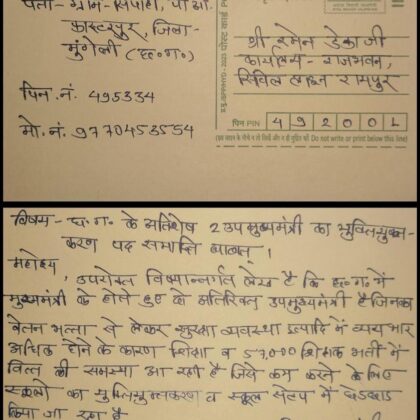 पता- ग्राम- सिपाही, पो.आ.
कास्टरपुर, जिला-
मुंगेली (छ.ग.)
पिन.नं. 495334
मो.नं. 9770453554
श्री रमेन डेका जी
कार्यालय - राजभवन,
सिविल लाइन रायपुर
पिन PIN 4 9 2 0 0 1
Do not write or print below this line
विषय- छ.ग. के अतिशेष 2 उपमुख्यमंत्री का युक्तियुक्त-
करण पद समाप्ति बाबत् ।
महोदय,
उपरोक्त विषयान्तर्गत लेख है कि छ.ग. में
मुख्यमंत्री के होते हुए दो अतिरिक्त उपमुख्यमंत्री है जिनका
वेतन भत्ता से लेकर सुरक्षा व्यवस्था इत्यादि में व्ययभार
अधिक होने के कारण शिक्षा व 57,000 शिक्षक भर्ती में
वित्त की समस्या आ रहा है जिसे कम करने के लिए
स्कूलों का युक्तियुक्तकरण व स्कूल सेटप में छेड़छाड़
किया जा रहा है